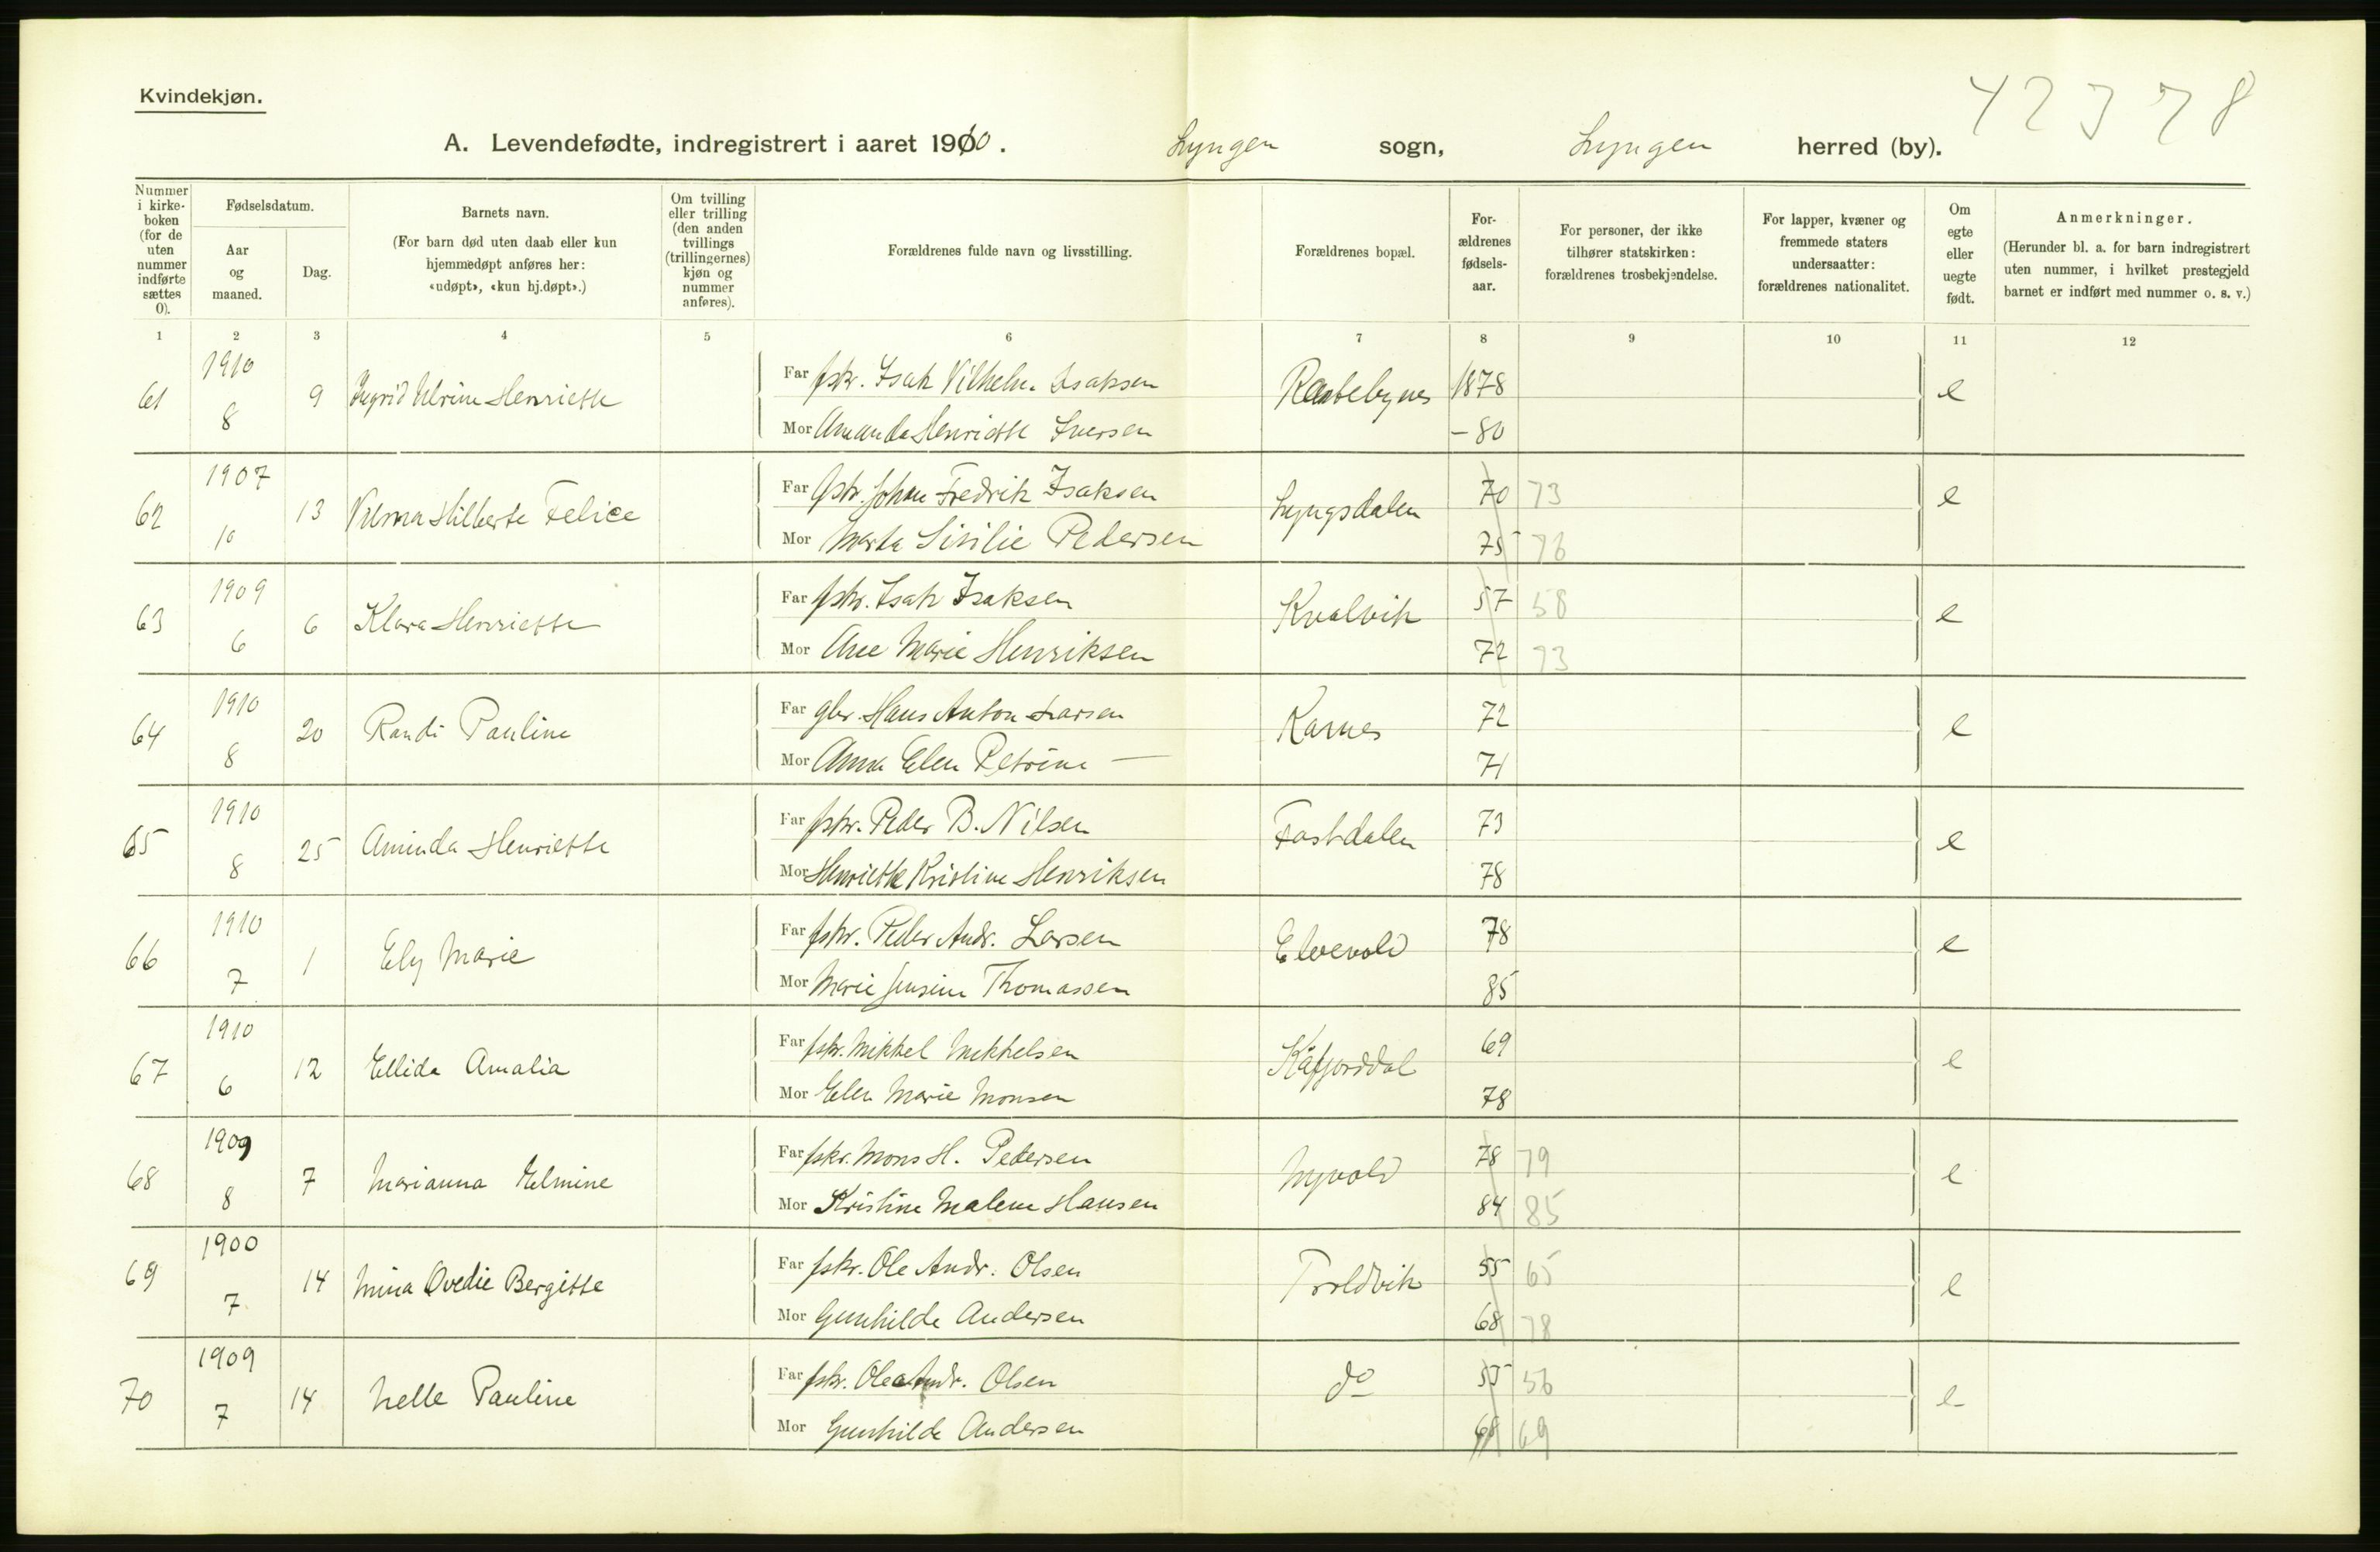 Kvindekjøn.
42378
A. Levendefødte, indregistrert i aaret 1910. Lyngen sogn, Lyngen herred (by).
Nummer i kirkeboken (for de uten nummer indførte sættes 0).
Fødselsdatum.
Aar og maaned.
Dag.
Barnets navn.
(For barn død uten daab eller kun hjemmedøpt anføres her: «udøpt», «kun hj.døpt».)
Om tvilling eller trilling (den anden tvillings (trillingernes) kjøn og nummer anføres).
Forældrenes fulde navn og livsstilling.
Forældrenes bopæl.
Forældrenes fødselsaar.
For personer, der ikke tilhører statskirken: forældrenes trosbekjendelse.
For lapper, kvæner og fremmede staters undersaatter: forældrenes nationalitet.
Om egte eller uegte født.
Anmerkninger.
(Herunder bl. a. for barn indregistrert uten nummer, i hvilket prestegjeld barnet er indført med nummer o. s. v.)
1 2 3 4 5 6 7 8 9 10 11 12
61 1910 8 9 Ingrid Ulrine Henriette Far fskr. Isak Vilhelm Isaksen 1878 e
Mor Amanda Henriette Iversen - 80
62 1907 10 13 Vilma Hilberte Felice Far fskr. Johan Fredrik Isaksen Lyngsdalen 70 73 e
Mor Marta Sisilie Pedersen 75 76
63 1909 6 6 Klara Henriette Far fskr. Isak Isaksen Kvalvik 57 58 e
Mor Ane Marie Henriksen 72 73
64 1910 8 20 Randi Pauline Far gbr. Hans Anton Larsen Karnes 72 e
Mor Anna Elen Petrine — 71
65 1910 8 25 Aminda Henriette Far fskr. Peder B. Nilsen Fastdalen 73 e
Mor Henriette Kristine Henriksen 78
66 1910 7 1 Ely Marie Far fskr. Peder Andr. Larsen Elvevold 78 e
Mor Marie Jensine Thomassen 85
67 1910 6 12 Ellida Amalia Far fskr. Mikkel Mikkelsen Kåfjorddal 69 e
Mor Elen Marie Monsen 78
68 1909 8 7 Marianna Elmine Far fskr. Mons H. Pedersen Nyvold 78 79 e
Mor Kristine Malene Hansen 84 85
69 1900 7 14 Mina Ovedie Bergitte Far fskr. Ole Andr. Olsen Troldvik 55 65 e
Mor Gunhilde Andersen 68 78
70 1909 7 14 Nelle Pauline Far fskr. Ole Andr. Olsen do 55 56 e
Mor Gunhilde Andersen 68 69